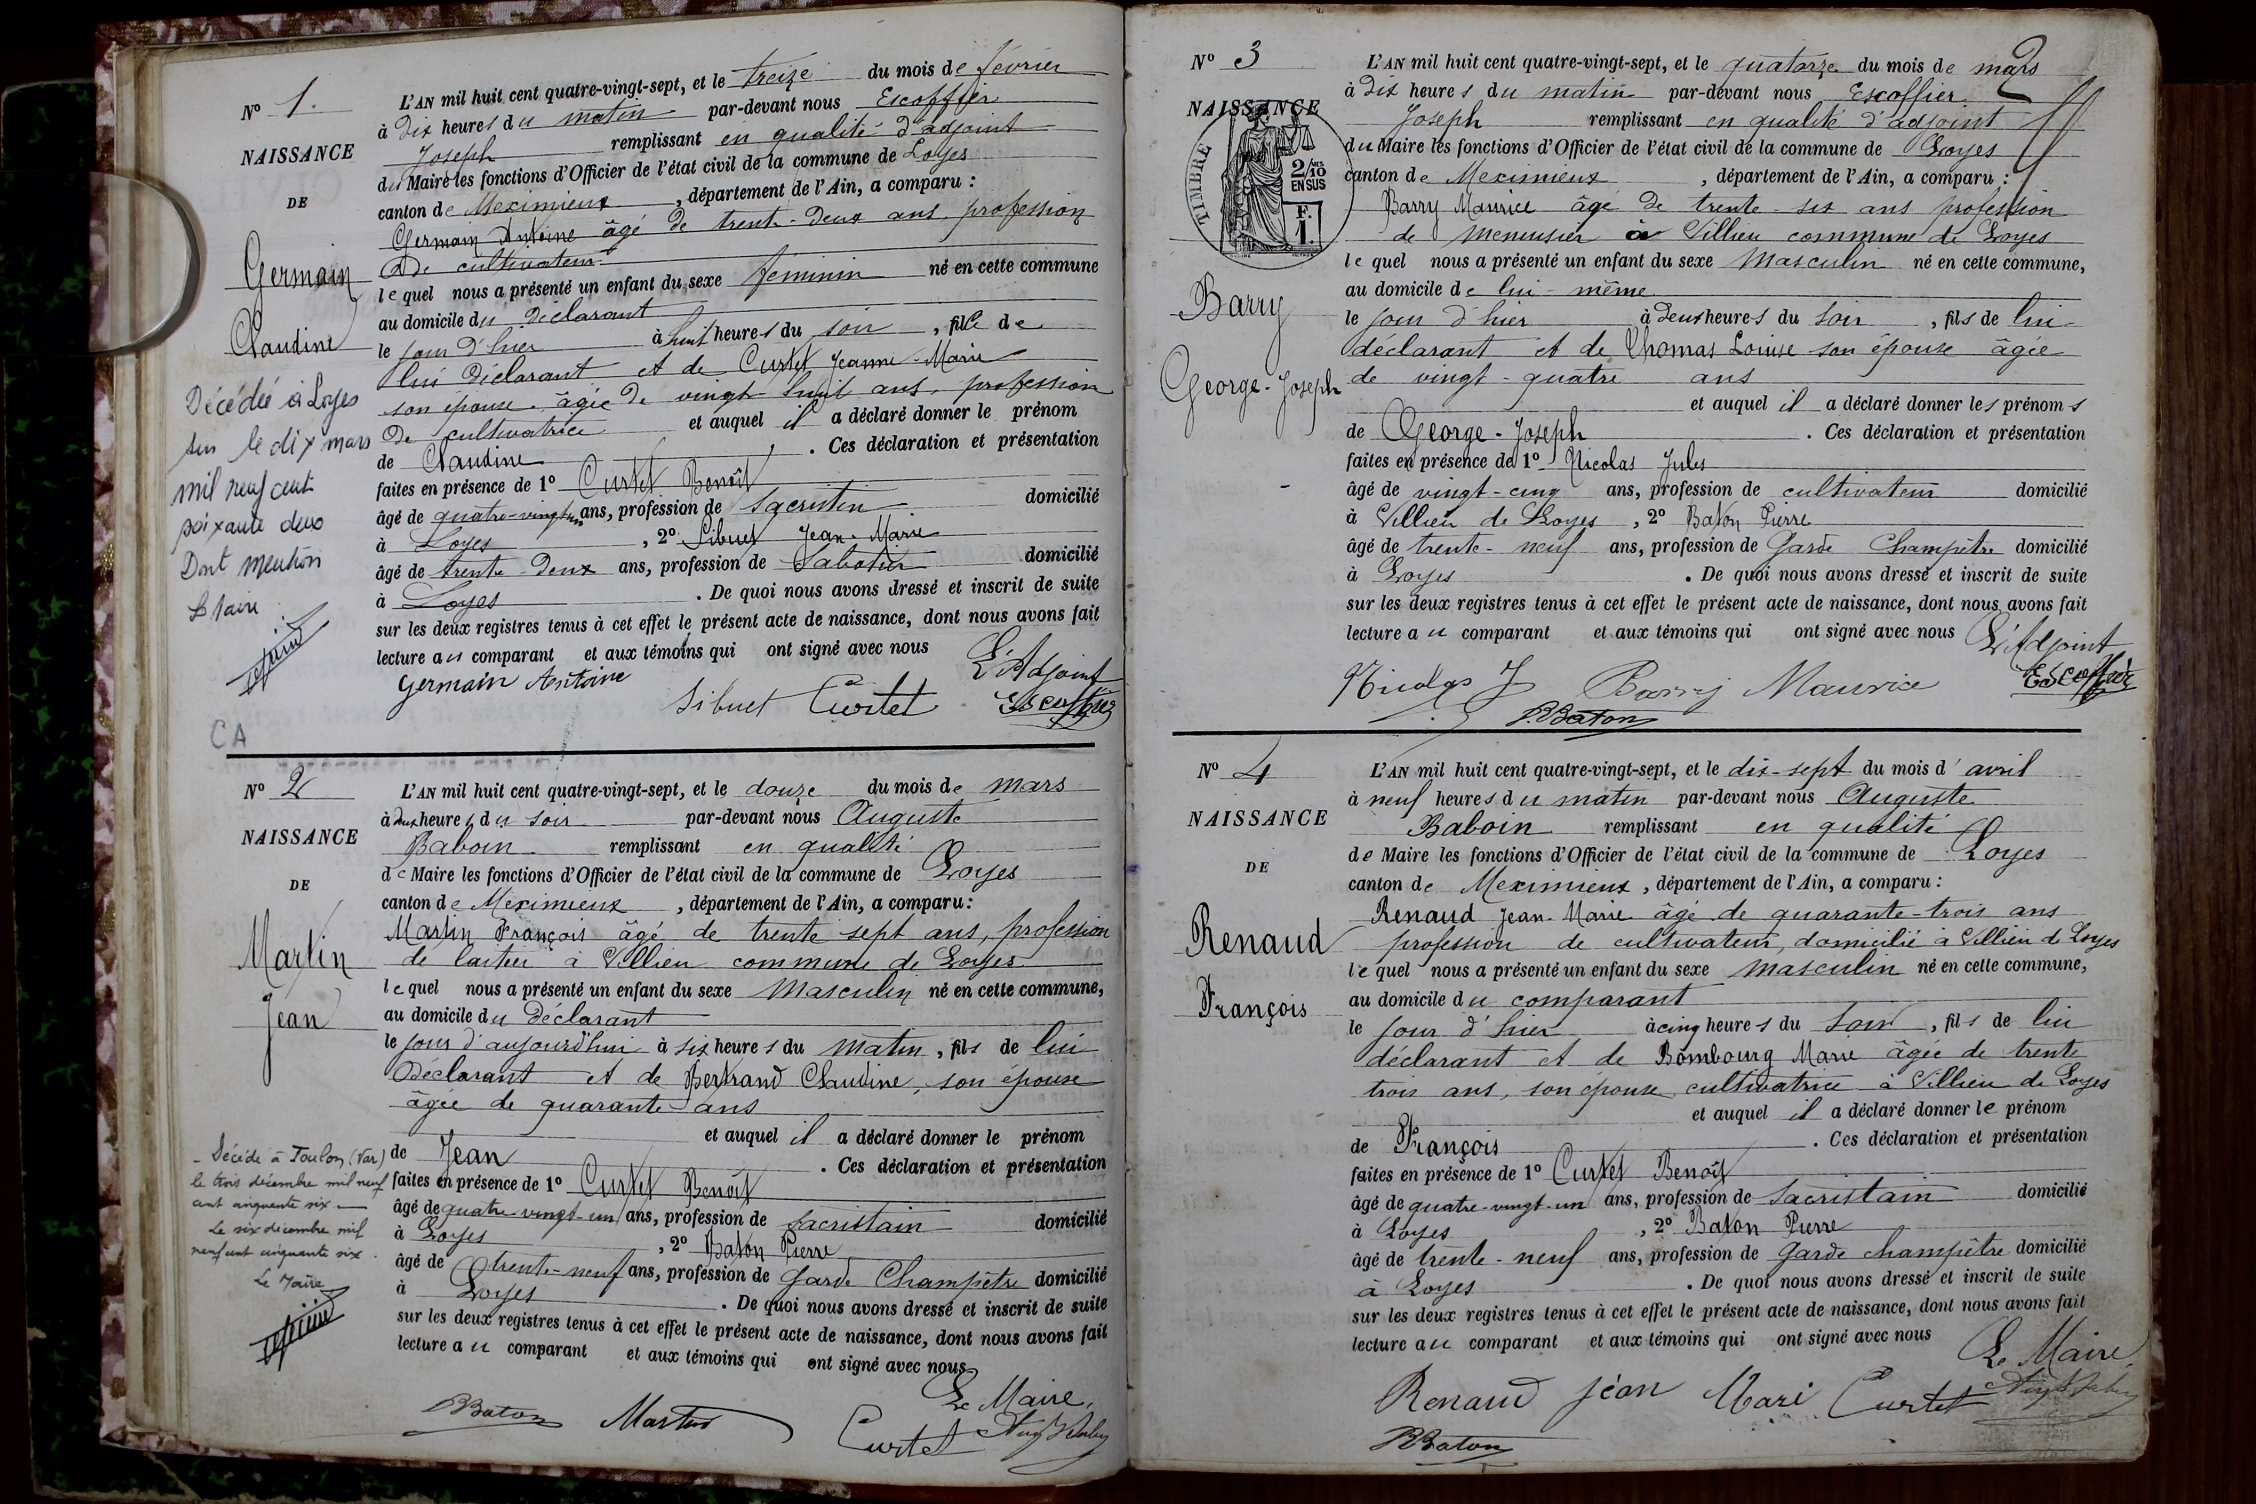 N° 1.
NAISSANCE
DE
Germain
Claudine
Décédée à Loyes
le dix mars
mil neuf cent
soixante deux
Dont mention
Le Maire
CA
L'AN mil huit cent quatre-vingt-sept, et le treize du mois de février
à dix heures du matin par-devant nous Escoffier
Joseph remplissant en qualité d'adjoint
du Maire les fonctions d'Officier de l'état civil de la commune de Loyes
canton de Meximieux, département de l'Ain, a comparu :
Germain Antoine âgé de trente-deux ans, profession
de cultivateur
lequel nous a présenté un enfant du sexe féminin né en cette commune
au domicile du déclarant
le jour d'hier à huit heures du soir, fille de
lui déclarant et de Curtet Jeanne-Marie
son épouse, âgée de vingt-huit ans, profession
de cultivatrice et auquel il a déclaré donner le prénom
de Claudine. Ces déclaration et présentation
faites en présence de 1° Curtet Benoît
âgé de quatre-vingt-un ans, profession de sacristin domicilié
à Loyes, 2° Sibuet Jean-Marie
âgé de trente-deux ans, profession de Sabotier domicilié
à Loyes. De quoi nous avons dressé et inscrit de suite
sur les deux registres tenus à cet effet le présent acte de naissance, dont nous avons fait
lecture au comparant et aux témoins qui ont signé avec nous
L'Adjoint
Germain Antoine
Sibuet Curtet Escoffier
N° 2
NAISSANCE
DE
Martin
Jean
Décédé à Toulon (Var)
le trois décembre mil neuf
cent cinquante six
Le six décembre mil
neuf cent cinquante six.
Le Maire
L'AN mil huit cent quatre-vingt-sept, et le douze du mois de mars
à deux heures du soir par-devant nous Auguste
Baboin remplissant en qualité
de Maire les fonctions d'Officier de l'état civil de la commune de Loyes
canton de Meximieux, département de l'Ain, a comparu :
Martin François âgé de trente sept ans, profession
de laitier à Villieu commune de Loyes
lequel nous a présenté un enfant du sexe Masculin né en cette commune,
au domicile du déclarant
le jour d'aujourd'hui à six heures du matin, fils de lui
déclarant et de Bertrand Claudine, son épouse
âgée de quarante ans
et auquel il a déclaré donner le prénom
de Jean. Ces déclaration et présentation
faites en présence de 1° Curtet Benoît
âgé de quatre-vingt-un ans, profession de sacristain domicilié
à Loyes, 2° Baton Pierre
âgé de trente-neuf ans, profession de Garde Champêtre domicilié
à Loyes. De quoi nous avons dressé et inscrit de suite
sur les deux registres tenus à cet effet le présent acte de naissance, dont nous avons fait
lecture au comparant et aux témoins qui ont signé avec nous
Le Maire,
PBaton Martin Curtet
2
N° 3
NAISSANCE
TIMBRE
2/10
EN SUS
F.
1.
Barry
George-Joseph
L'AN mil huit cent quatre-vingt-sept, et le quatorze du mois de mars
à dix heures du matin par-devant nous Escoffier
Joseph remplissant en qualité d'adjoint
du Maire les fonctions d'Officier de l'état civil de la commune de Loyes
canton de Meximieux, département de l'Ain, a comparu :
Barry Maurice âgé de trente-six ans profession
de menuisier à Villieu commune de Loyes
lequel nous a présenté un enfant du sexe Masculin né en cette commune,
au domicile de lui-même
le jour d'hier à deux heures du soir, fils de lui
déclarant et de Thomas Louise son épouse âgée
de vingt-quatre ans
et auquel il a déclaré donner les prénoms
de George-Joseph. Ces déclaration et présentation
faites en présence de 1° Nicolas Jules
âgé de vingt-cinq ans, profession de cultivateur domicilié
à Villieu de Loyes, 2° Baton Pierre
âgé de trente-neuf ans, profession de Garde Champêtre domicilié
à Loyes. De quoi nous avons dressé et inscrit de suite
sur les deux registres tenus à cet effet le présent acte de naissance, dont nous avons fait
lecture au comparant et aux témoins qui ont signé avec nous
L'Adjoint
Nicolas J Barry Maurice Escoffier
PBaton
N° 4
NAISSANCE
DE
Renaud
François
L'AN mil huit cent quatre-vingt-sept, et le dix-sept du mois d'avril
à neuf heures du matin par-devant nous Auguste
Baboin remplissant en qualité
de Maire les fonctions d'Officier de l'état civil de la commune de Loyes
canton de Meximieux, département de l'Ain, a comparu :
Renaud Jean-Marie âgé de quarante-trois ans
profession de cultivateur, domicilié à Villieu de Loyes
lequel nous a présenté un enfant du sexe masculin né en cette commune,
au domicile du comparant
le jour d'hier à cinq heures du soir, fils de lui
déclarant et de Bombourg Marie âgée de trente
trois ans, son épouse, cultivatrice à Villieu de Loyes
et auquel il a déclaré donner le prénom
de François. Ces déclaration et présentation
faites en présence de 1° Curtet Benoît
âgé de quatre-vingt-un ans, profession de sacristain domicilié
à Loyes, 2° Baton Pierre
âgé de trente-neuf ans, profession de garde champêtre domicilié
à Loyes. De quoi nous avons dressé et inscrit de suite
sur les deux registres tenus à cet effet le présent acte de naissance, dont nous avons fait
lecture au comparant et aux témoins qui ont signé avec nous
Le Maire,
Renaud Jean Mari Curtet
PBaton